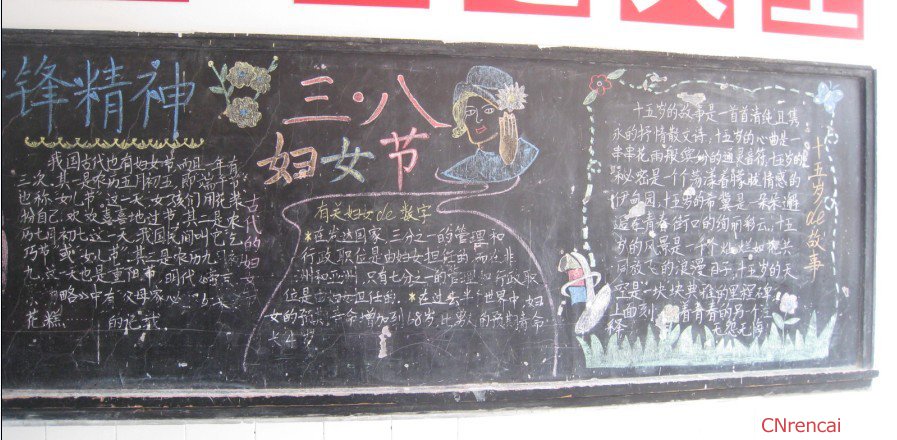 锋精神
我国古代也有妇女节,而且一年有
三次。其一是农历五月初五,即端午节
也称女儿节。这一天女孩们用花装
扮自己,欢欢喜喜地过节。其二是农
历七月初七这一天,我国民间叫它乞
巧节或女儿节。其三是农历九月初
九,这一天也是重阳节,明代
略》中有"父母家必
花糕 的记载。
古代的妇女
三·八
妇女节
有关妇女de数字
*在发达国家,三分之一的管理和
行政职位是由妇女担任的,而在非
洲和亚洲,只有七分之一的管理和行政职
位是由妇女担任的。*在过去半世界中,妇
女的预期寿命增加到48岁,比男人的预期寿命
长4岁
十五岁de故事
十五岁的故事是一首首清纯且隽
永的抒情散文诗,十五岁的心曲是一
串串花雨般缤纷的通灵音符,十五岁的
秘密是一个荡漾着朦胧情感的
伊甸园,十五岁的希望是一朵朵邂
逅在青春街口的绚丽彩云,十五
岁的风景是一个个灿烂如花共
同放飞的浪漫日子,十五岁的天
空是一块块典雅的里程碑,
上面刻 着青春的另个注
释 无怨无悔
CNrencai